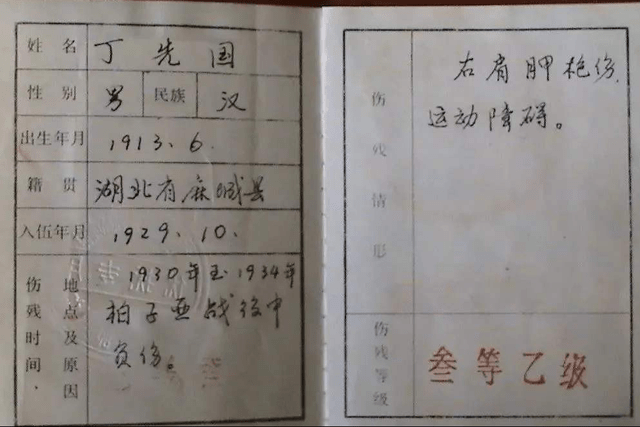 姓名 丁先国
性别 男 民族 汉
出生年月 1913.6.
籍贯 湖北省麻城县
入伍年月 1929.10.
伤残时间、地点及原因
1930年至1934年
柏子亚战役中
负伤。
伤残情形
右肩胛枪伤
运动障碍。
伤残等级 叁等乙级